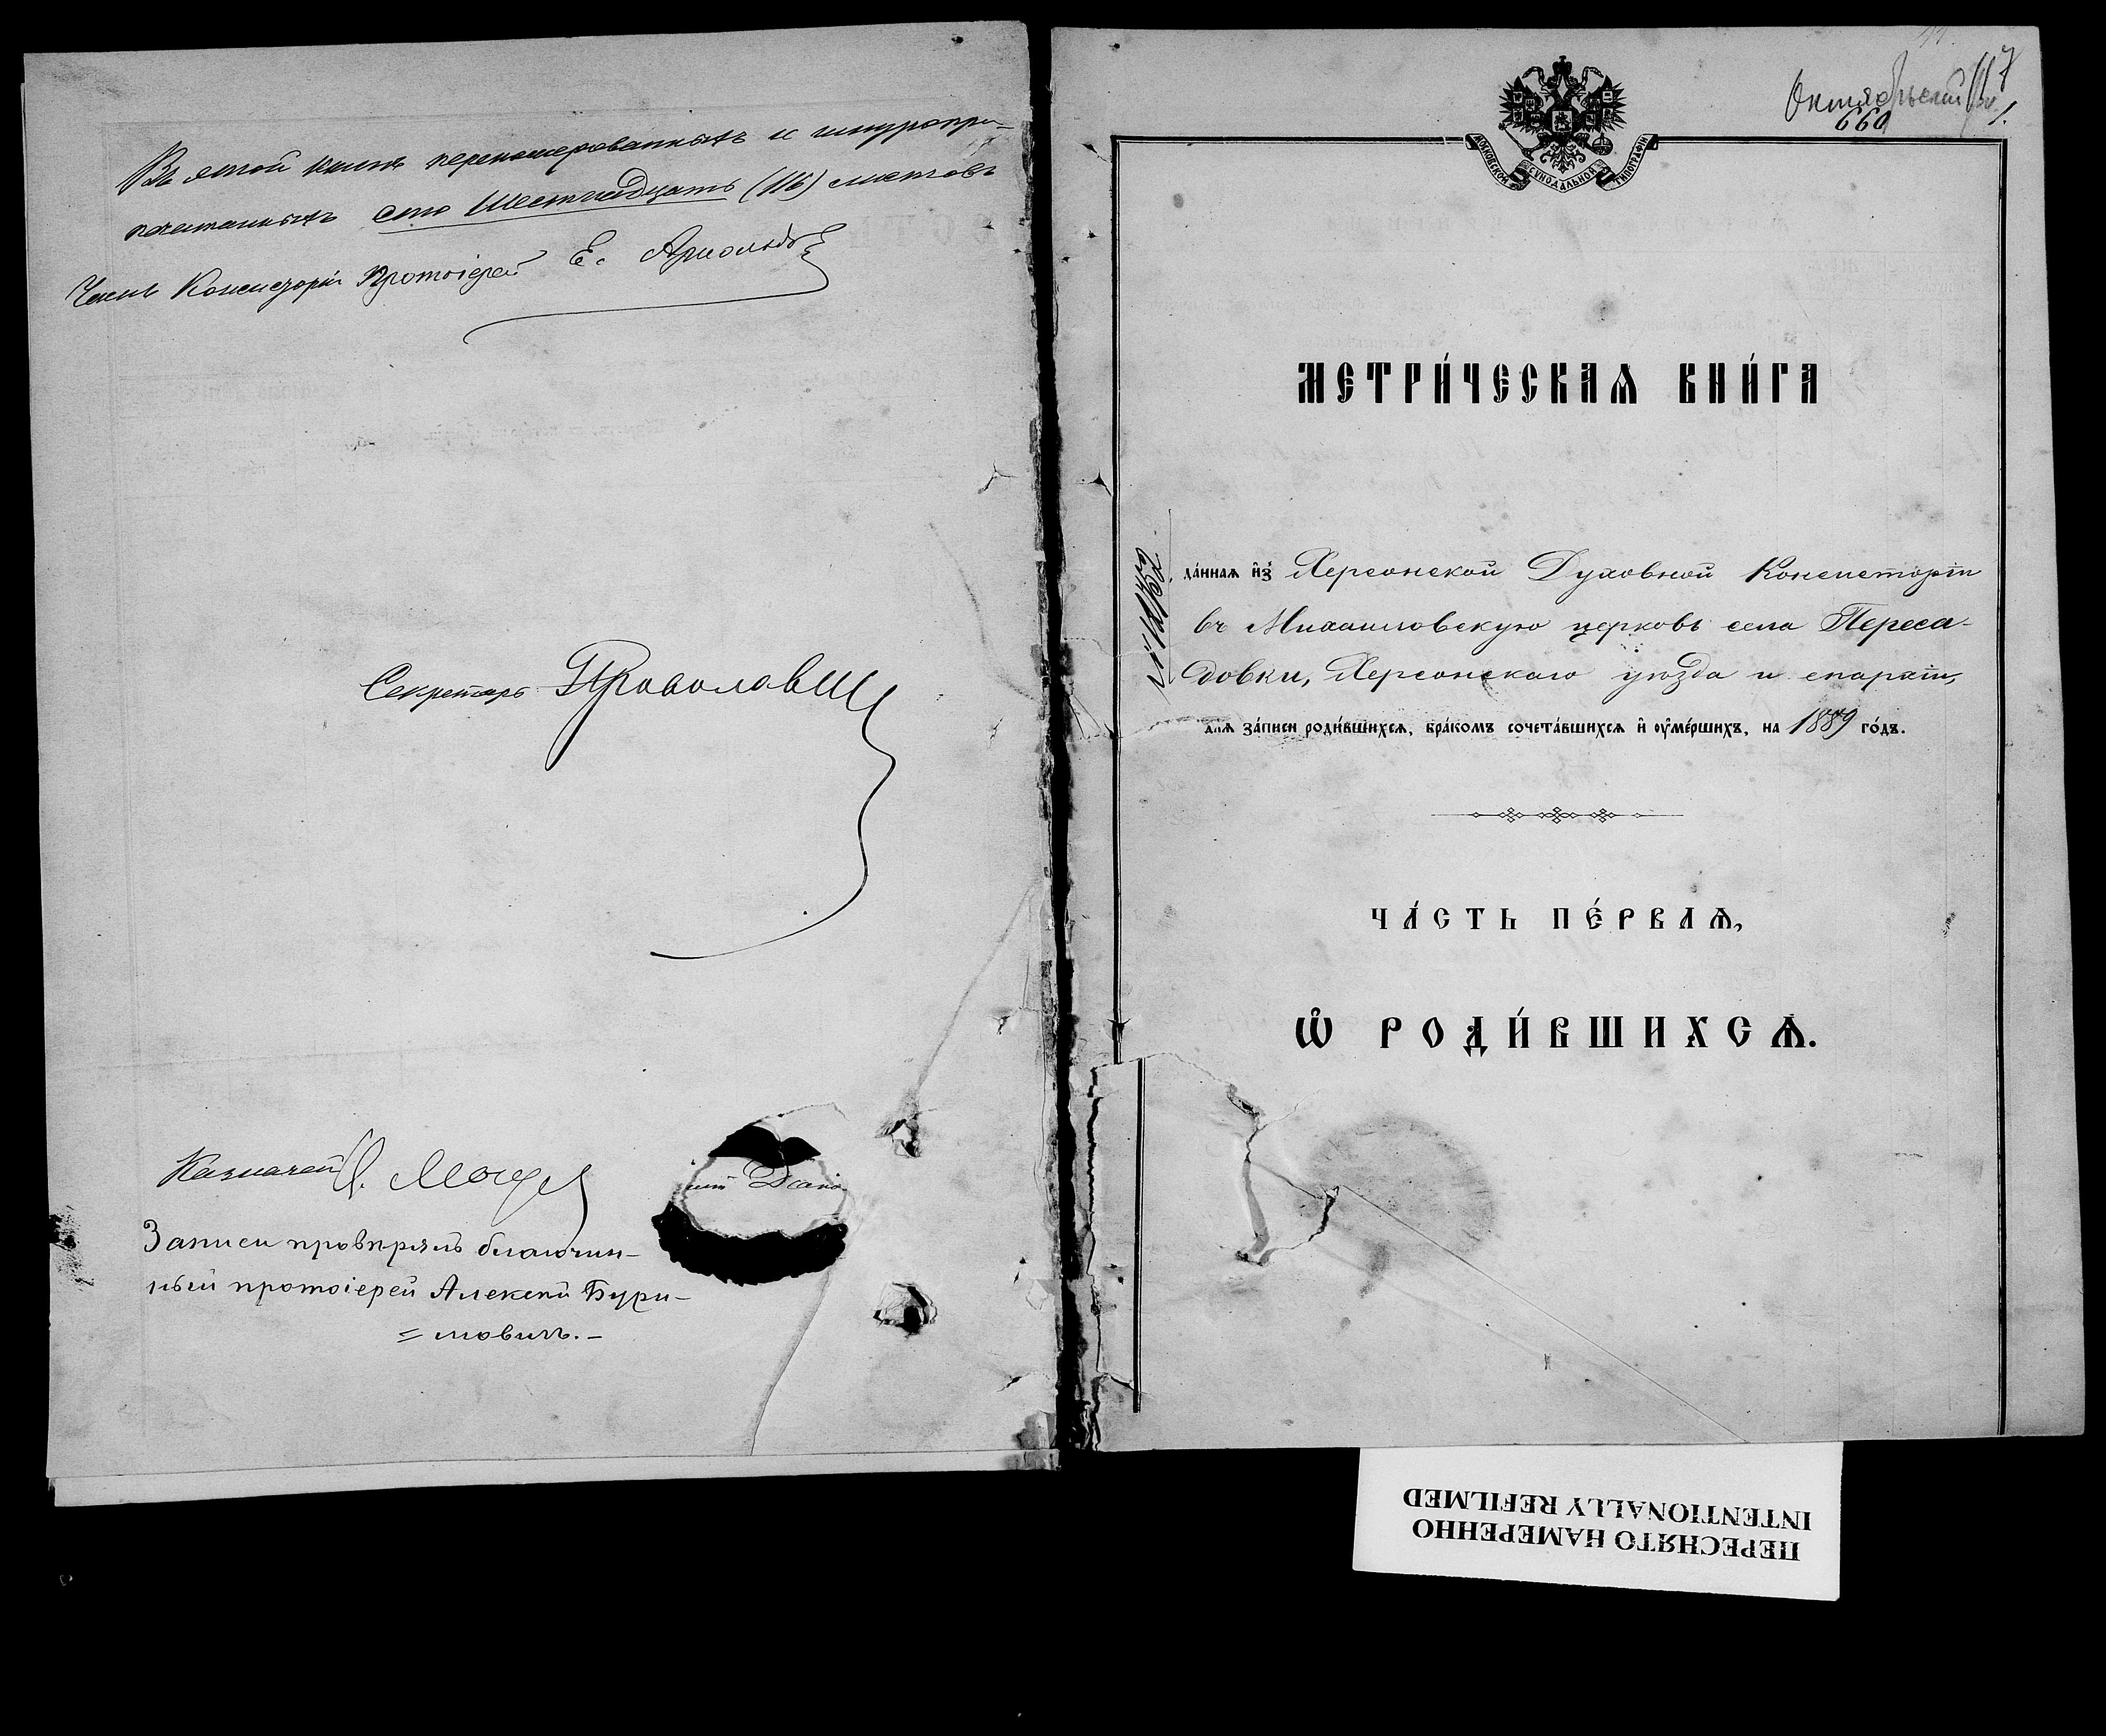 Въ этой книгѣ перенумерованныхъ и шнуропри-
печатанныхъ сто шестнадцать (116) листовъ
Членъ Консисторіи Протоіерей Е. Арнольдъ
Секретарь
Казначей
Записи провѣрялъ благочин-
ный протоіерей Алексій Бури-
= мовичъ. –
Октябрьский
660
117
1.
МОСКОВСКОЙ СѴНОДАЛЬНОЙ ТИПОГРАФІИ
МЕТРИ́ЧЕСКАѦ КНИ́ГА
да́ннаѧ и҆зъ Херсонской Духовной Консисторіи
въ Михаиловскую церковь села Переса-
довки, Херсонскаго уѣзда и епархіи,
для за́писи роди́вшихсѧ, бра́комъ сочета́вшихсѧ и҆ ᲂу҆ме́ршихъ, на 1889 го́дъ.
ЧА́СТЬ ПЕ́РВАѦ,
Ѽ РОДИ́ВШИХСѦ.
ПЕРЕСНЯТО НАМЕРЕННО
INTENTIONALLY REFILMED